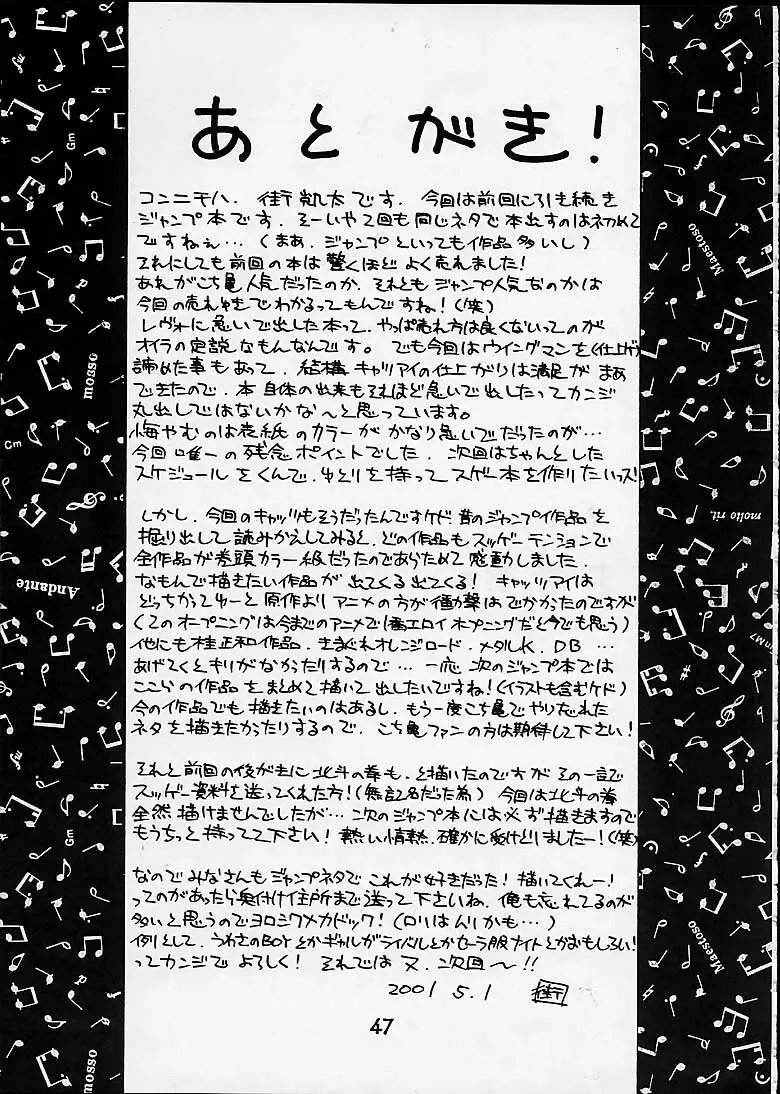 あとがき!
コンニチハ. 街凱太です. 今回は前回に引き続き
ジャンプ本です. そーいや2回も同じネタで本出すのは初めて
ですねぇ…(まあ.ジャンプといっても作品多いし)
それにしても前回の本は驚くほどよく売れました!
あれがこち亀人気だったのか.それともジャンプ人気なのかは
今回の売れゆきでわかるってもんですね!(笑)
レヴォに急いで出した本って.やっぱ売れ方は良くないってのが
オイラの定説なもんなんです。でも今回はウイングマンを(仕上げ)
諦めた事もあって.結構キャツアイの仕上がりは満足がまぁ
できたので.本自体の出来もそれほど急いで出したってカンジ
丸出しではないかな〜と思っています。
悔やむのは表紙のカラーがかなり急いでだったのが…
今回唯一の残念ポイントでした. 次回はちゃんとした
スケジュールをくんで.ゆとりを持ってスゲー本を作りたいっス!
しかし.今回のキャッツもそうだったんですケド昔のジャンプ作品を
掘り出して読みかえしてみると.どの作品もスッゲーテンションで
全作品が巻頭カラー級だったのであらためて感動しました.
なもんで描きたい作品が出てくる出てくる! キャッツアイは
どっちかってゆーと原作よりアニメの方が衝撃はでかかたのですが
(2のオープニングは今までのアニメで1番エロイオープニングだと今でも思う)
他にも桂正和作品.きまぐれオレンジロード.メタルK.DB…
あげてくとキリがなかったりするので…一応次のジャンプ本では
ここらの作品をまとめて描いて出したいですね!(イラストも含むケド)
今の作品でも描きたいのはあるし.もう一度こち亀でやりたかった
ネタを描きたかったりするので.こち亀ファンの方は期待して下さい!
それと前回の後がきに北斗の拳も.と描いたのですがその一言で
スッゲー資料を送ってくれた方!(無記名だった為) 今回は北斗の拳
全然描けませんでしたが…次のジャンプ本には必ず描きますので
もうちっと待ってて下さい!熱い情熱.確かに受けとりましたー!(笑)
なのでみなさんもジャンプネタでこれが好きだった!描いてくれー!
ってのがあったら奥付け住所まで送って下さいね.俺も忘れてるのが
多いと思うのでヨロシクメカドック!(ロリはムリかも…)
例として.うわさのBOYとかギャルがライバルとかセーラ服ナイトとかおもしろい!
ってカンジでよろしく! それでは又.次回〜!!
2001 5.1 街
47
mosso
Gm
Cm
Andante
Maestoso
molto rit.
mosso
Gm
Maestoso